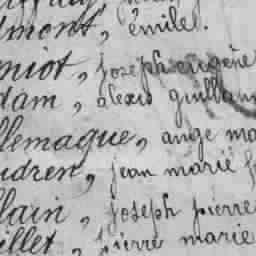 lmont, émile.
miot, joseph eugène
dam, alexis guillaum
llemaque, ange ma
udren, jean marie f
llain, joseph pierre
illet, pierre marie